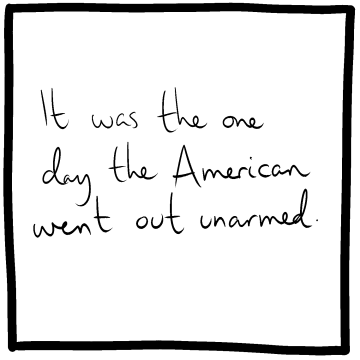 It was the one
day the American
went out unarmed.